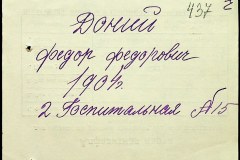 437
Доний
Федор Федорович
1904г.
2 Госпитальная №15